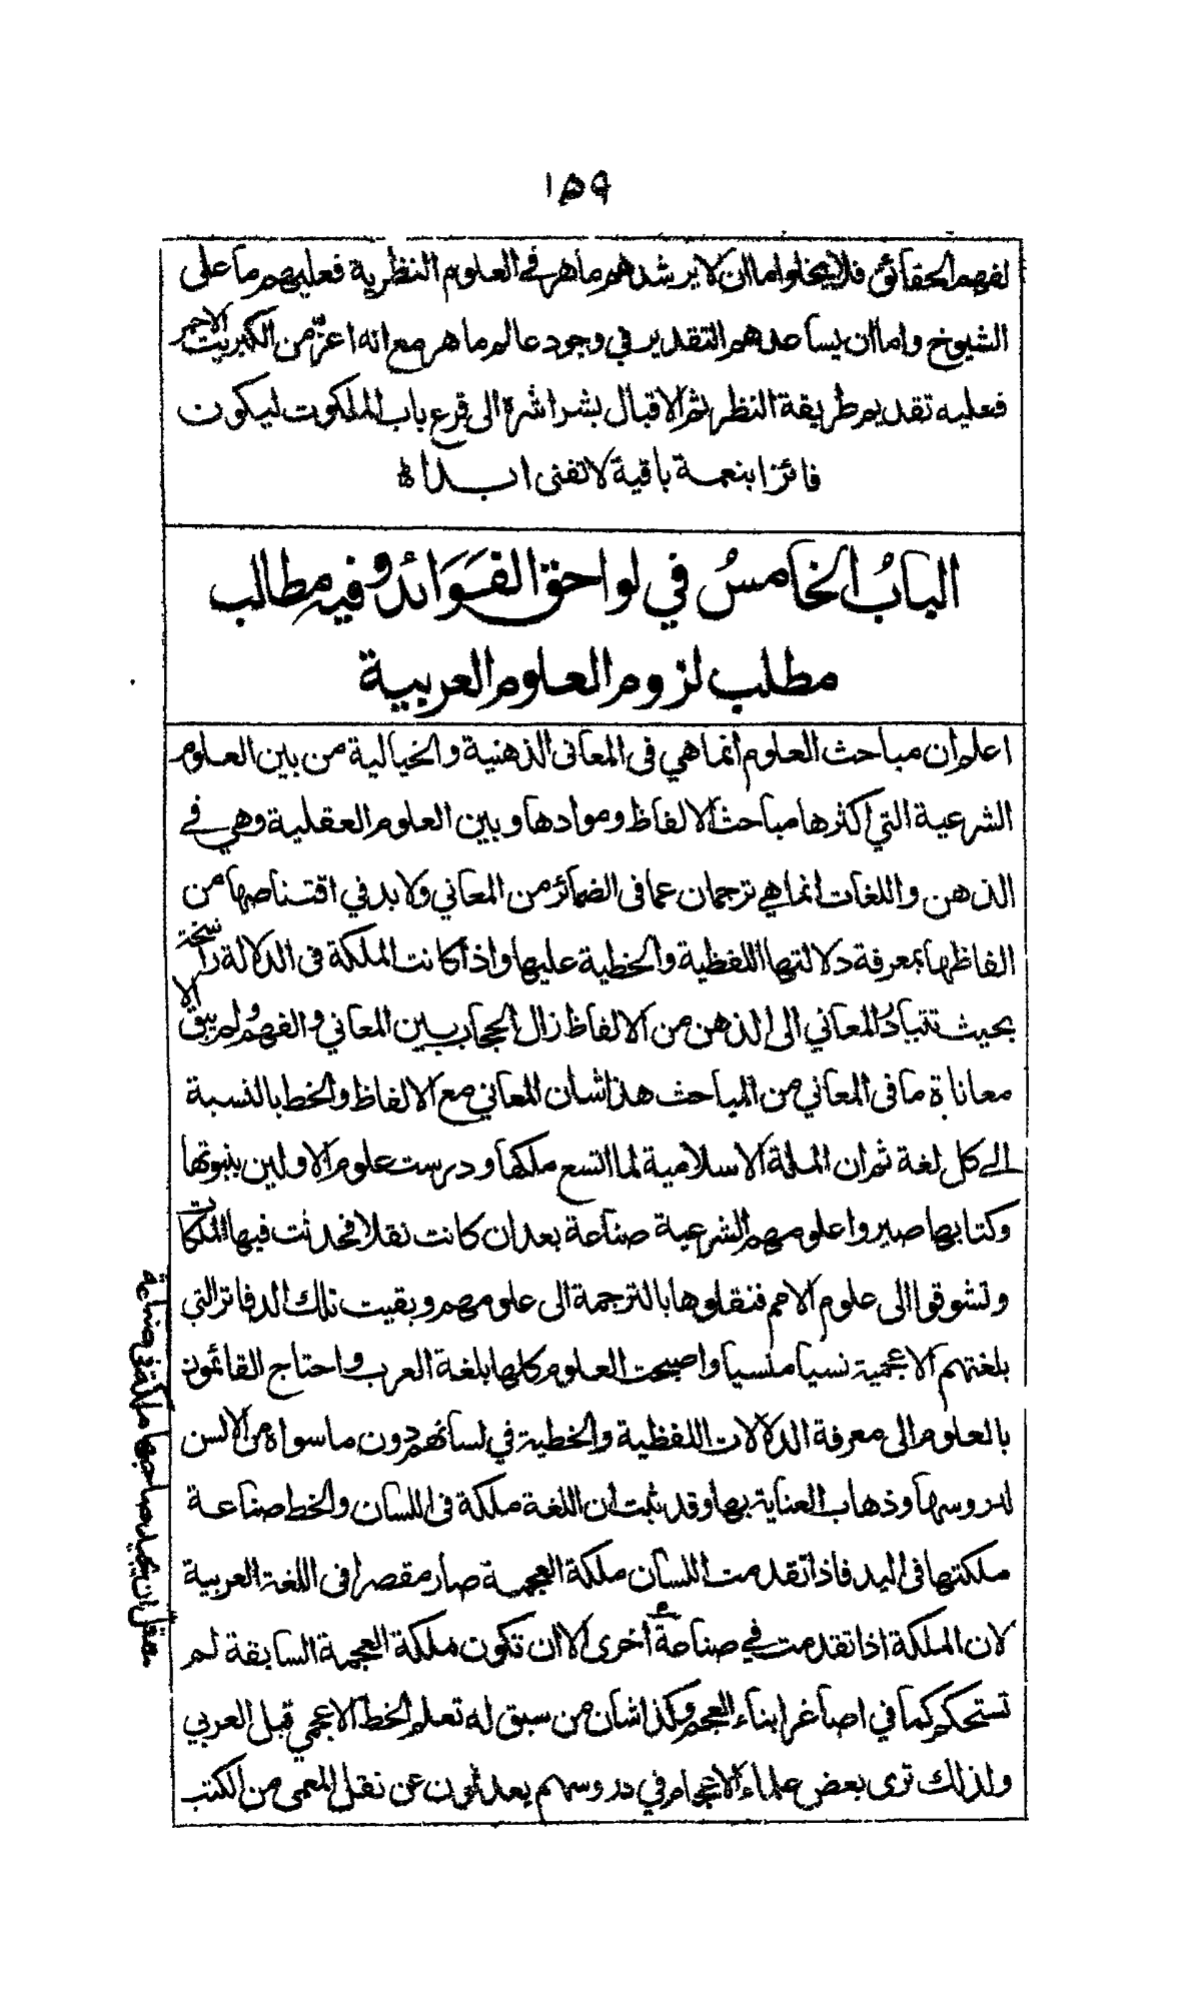 ١٥٩
لفهم الحقائق فلا يخلوا اما ان لا يرشدهم ماهر في العلوم النظرية فعليهم ما على
الشيوخ واما ان يساعدهم التقدير في وجود عالم ماهر مع انه اعزّ من الكبريت الاحمر
فعليه تقديم طريقة النظر ثم الاقبال بشراشره الى قرع باب الملكوت ليكون
فائزا بنعمة باقية لا تفنى ابدا
البابُ الخامسُ في لواحق الفَوَائد وفيه مطالب
مطلب لزوم العلوم العربية
اعلم ان مباحث العلوم انما هي في المعانى الذهنية والخيالية من بين العلوم
الشرعية التي اكثرها مباحث الالفاظ وموادها وبين العلوم العقلية وهي في
الذهن واللغات انما هي ترجمان عما فى الضمائر من المعاني ولا بد في اقتناصها من
الفاظها بمعرفة دلالتها اللفظية والخطية عليها واذا كانت الملكة فى الدلالة راسخة
بحيث تتبادُ المعاني الى الذهن من الالفاظ زال الحجاب بين المعاني والفهمُ ولم يبق الا
معاناة ما فى المعاني من المباحث هذا شان المعاني مع الالفاظ والخط بالنسبة
الى كل لغة ثم ان الملة الاسلامية لما اتسع ملكها ودرست علوم الاولين بنبوتها
وكتابها صيروا علومهم الشرعية صناعة بعد ان كانت نقلا فحدثت فيها الملكات
وتشوقوا الى علوم الامم فنقلوها بالترجمة الى علومهم وبقيت تلك الدفاتر التي
بلغتهم الاعجمية نسيا منسيا واصبحت العلوم كلها بلغة العرب واحتاج القائمون
بالعلوم الى معرفة الدلالات اللفظية والخطية في لسانهم دون ما سواه من الالسن
لدروسها وذهاب العناية بها وقد ثبت ان اللغة ملكة فى اللسان والخط صناعة
ملكتها فى اليد فاذا تقدمت اللسان ملكة العجمة صار مقصرا فى اللغة العربية
لان الملكة اذا تقدمت في صناعة اخرى الا ان تكون ملكة العجمة السابقة لم
تستحكم كما في اصاغر ابناء العجم وكذا شان من سبق له تعلم الخط الاعجمي قبل العربي
ولذلك ترى بعض علماء الاعجام في دروسهم يعدلون عن نقل المعمى من الكتب
فقل ان يجيد صاحبها ملكة فى صناعة